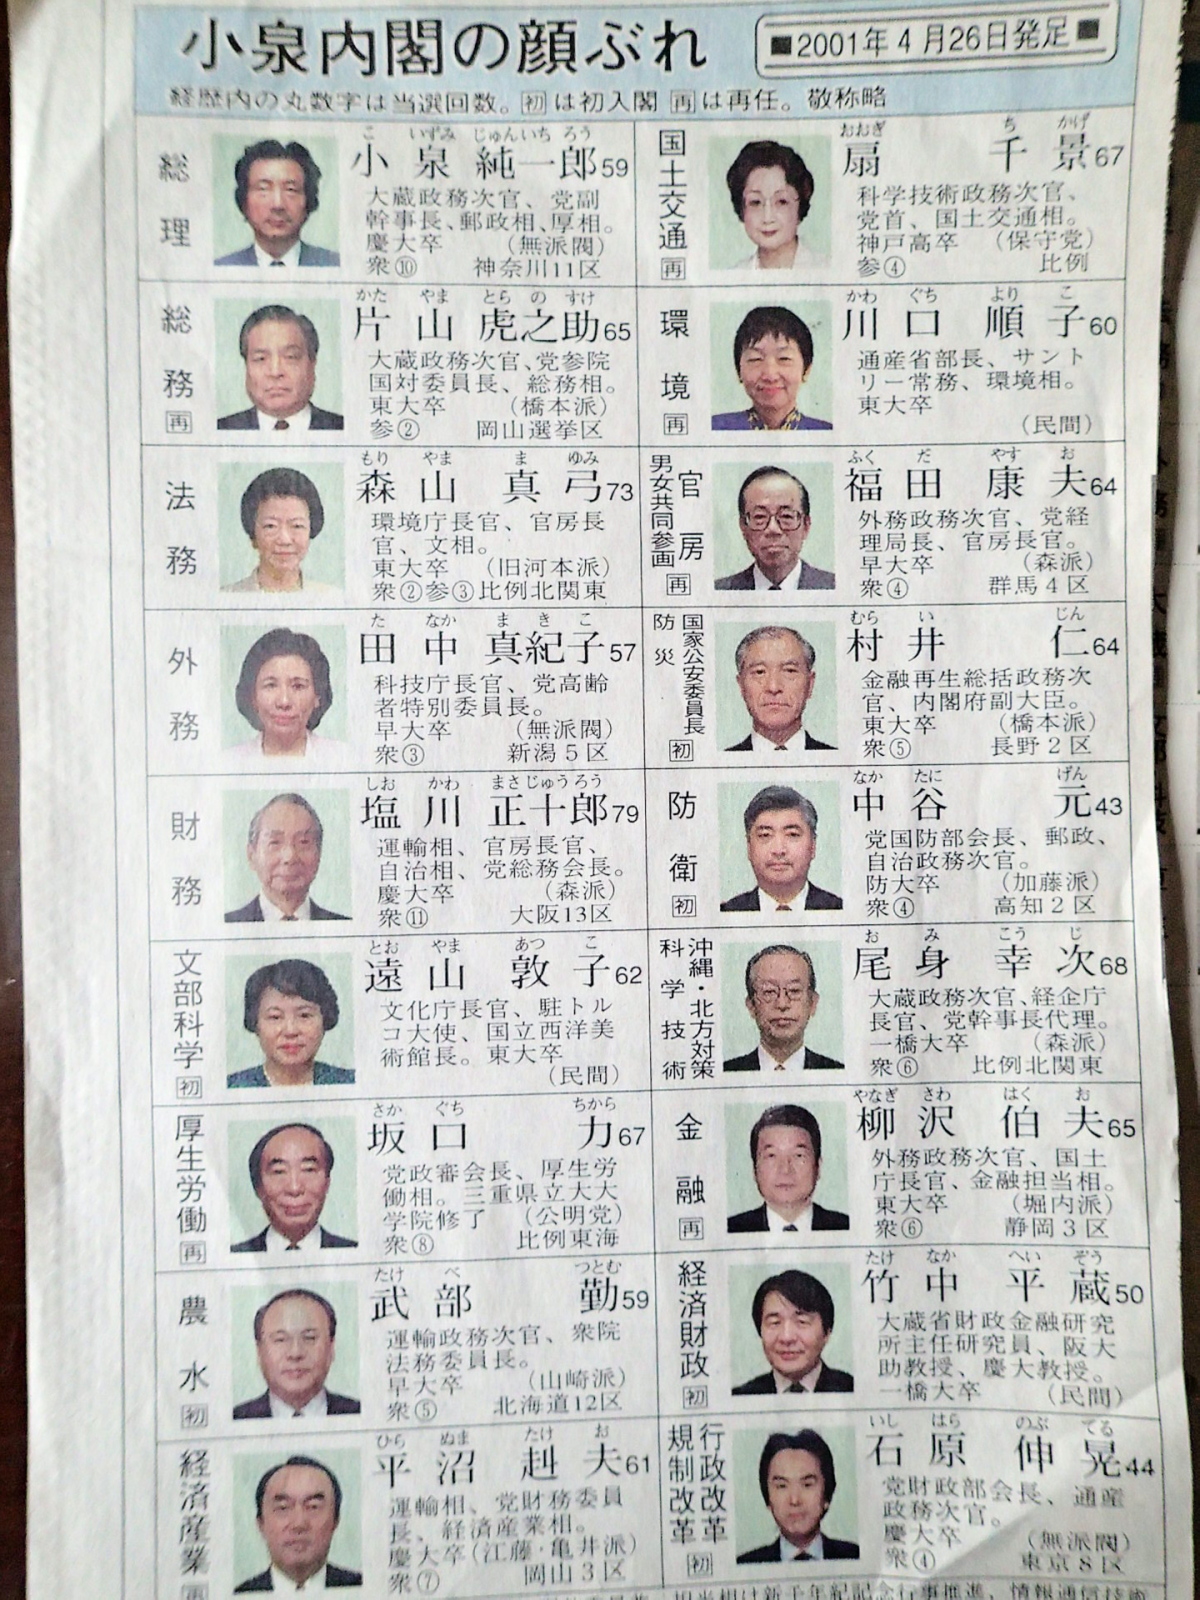 小泉内閣の顔ぶれ
■2001年4月26日発足■
経歴内の丸数字は当選回数。初は初入閣 再は再任。敬称略
総理
こ いずみ じゅんいち ろう
小泉純一郎59
大蔵政務次官、党副
幹事長、郵政相、厚相。
慶大卒 (無派閥)
衆⑩ 神奈川11区
総務 再
かた やま とら の すけ
片山虎之助65
大蔵政務次官、党参院
国対委員長、総務相。
東大卒 (橋本派)
参② 岡山選挙区
法務
もり やま ま ゆみ
森山真弓73
環境庁長官、官房長
官、文相。
東大卒 (旧河本派)
衆②参③比例北関東
外務
た なか ま き こ
田中真紀子57
科技庁長官、党高齢
者特別委員長。
早大卒 (無派閥)
衆③ 新潟5区
財務
しお かわ まさじゅうろう
塩川正十郎79
運輸相、官房長官、
自治相、党総務会長。
慶大卒 (森派)
衆⑪ 大阪13区
文部科学 初
とお やま あつ こ
遠山敦子62
文化庁長官、駐トル
コ大使、国立西洋美
術館長。東大卒
(民間)
厚生労働 再
さか ぐち ちから
坂口力67
党政審会長、厚生労
働相。三重県立大大
学院修了 (公明党)
衆⑧ 比例東海
農水 初
たけ べ つとむ
武部勤59
運輸政務次官、衆院
法務委員長。
早大卒 (山崎派)
衆⑤ 北海道12区
経済産業 再
ひら ぬま たけ お
平沼赳夫61
運輸相、党財務委員
長、経済産業相。
慶大卒(江藤・亀井派)
衆⑦ 岡山3区
国土交通 再
おおぎ ち かげ
扇千景67
科学技術政務次官、
党首、国土交通相。
神戸高卒 (保守党)
参④ 比例
環境 再
かわ ぐち より こ
川口順子60
通産省部長、サント
リー常務、環境相。
東大卒
(民間)
官房
男女共同参画 再
ふく だ やす お
福田康夫64
外務政務次官、党経
理局長、官房長官。
早大卒 (森派)
衆④ 群馬4区
国家公安委員長
防災 初
むら い じん
村井仁64
金融再生総括政務次
官、内閣府副大臣。
東大卒 (橋本派)
衆⑤ 長野2区
防衛 初
なか たに げん
中谷元43
党国防部会長、郵政、
自治政務次官。
防大卒 (加藤派)
衆④ 高知2区
沖縄・北方対策
科学技術
お み こう じ
尾身幸次68
大蔵政務次官、経企庁
長官、党幹事長代理。
一橋大卒 (森派)
衆⑥ 比例北関東
金融 再
やなぎ さわ はく お
柳沢伯夫65
外務政務次官、国土
庁長官、金融担当相。
東大卒 (堀内派)
衆⑥ 静岡3区
経済財政 初
たけ なか へい ぞう
竹中平蔵50
大蔵省財政金融研究
所主任研究員、阪大
助教授、慶大教授。
一橋大卒 (民間)
行政改革
規制改革 初
いし はら のぶ てる
石原伸晃44
党財政部会長、通産
政務次官。
慶大卒 (無派閥)
衆④ 東京8区